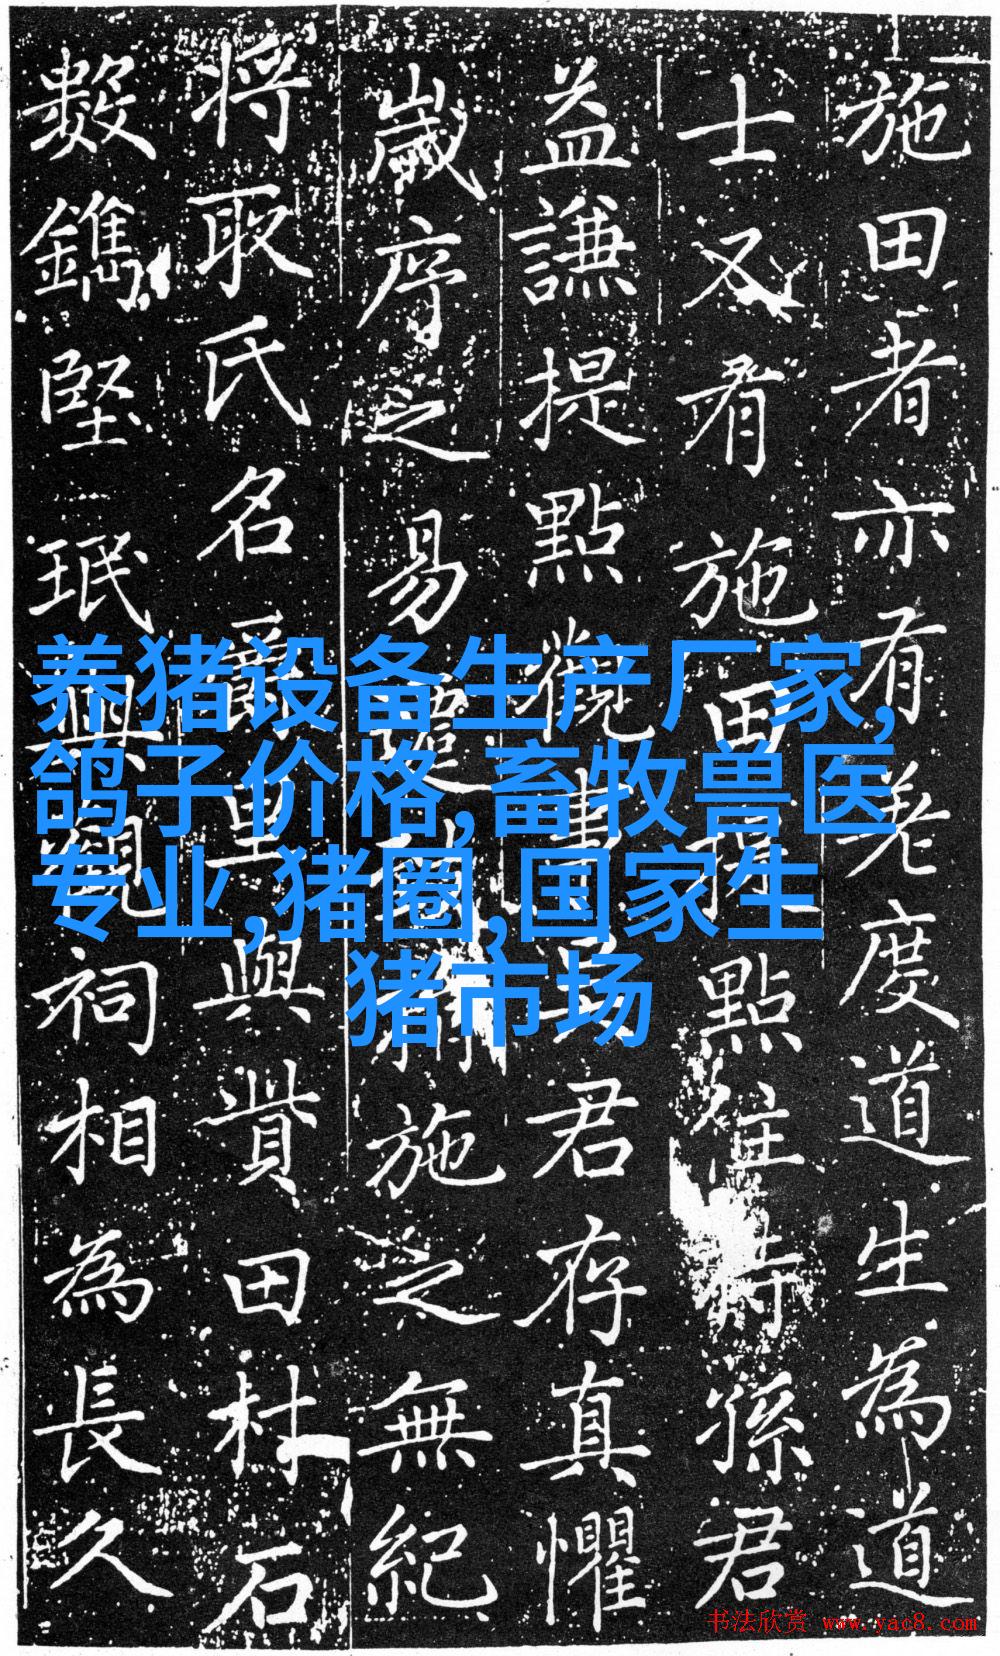 施田者亦有老度道生為道
士又有施田提點住持孫君
益謙提點觀事王君存真懼
歲序之易遷施之無紀
將取氏名爵里與貲田杜石
數鐫堅珉與觀祠相為長久
养猪设备生产厂家,
鸽子价格,畜牧兽医
专业,猪圈,国家生
猪市场
书法欣赏 www.yac8.com